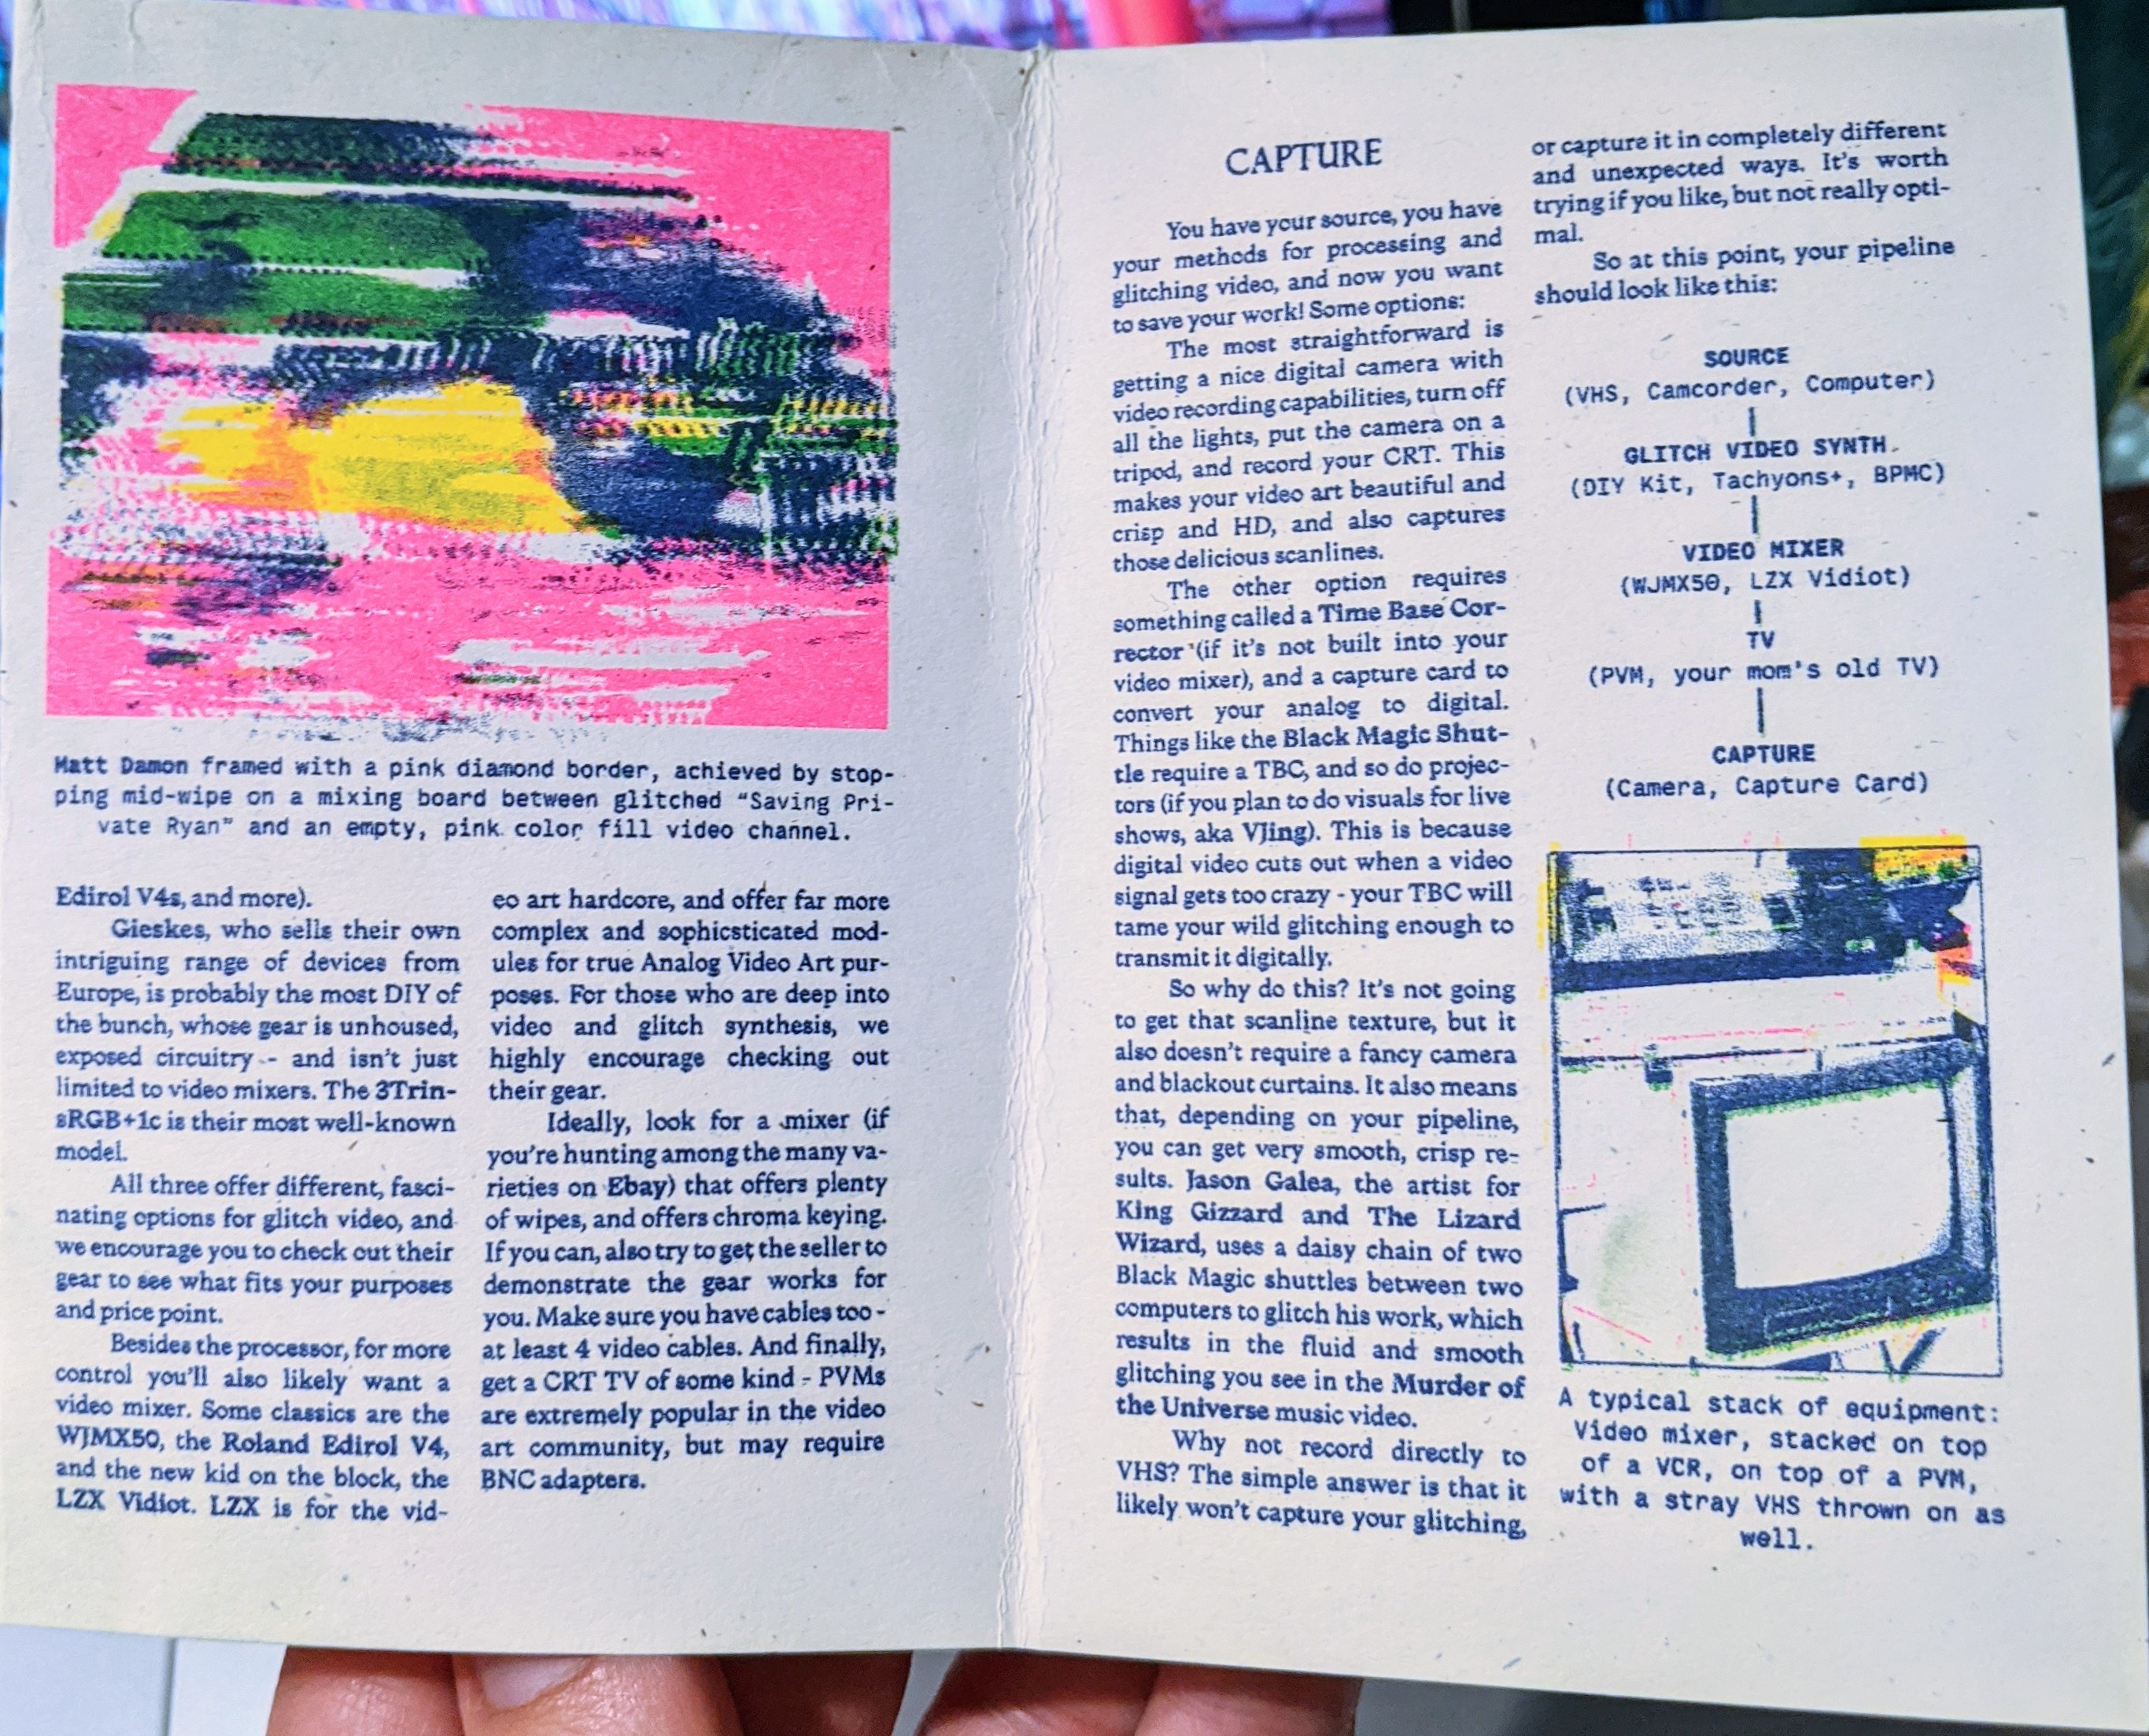 Matt Damon framed with a pink diamond border, achieved by stop-
ping mid-wipe on a mixing board between glitched "Saving Pri-
vate Ryan" and an empty, pink color fill video channel.
Edirol V4s, and more).
Gieskes, who sells their own
intriguing range of devices from
Europe, is probably the most DIY of
the bunch, whose gear is unhoused,
exposed circuitry - and isn't just
limited to video mixers. The 3Trin-
sRGB+1c is their most well-known
model.
All three offer different, fasci-
nating options for glitch video, and
we encourage you to check out their
gear to see what fits your purposes
and price point.
Besides the processor, for more
control you'll also likely want a
video mixer. Some classics are the
WJMX50, the Roland Edirol V4,
and the new kid on the block, the
LZX Vidiot. LZX is for the vid-
eo art hardcore, and offer far more
complex and sophicsticated mod-
ules for true Analog Video Art pur-
poses. For those who are deep into
video and glitch synthesis, we
highly encourage checking out
their gear.
Ideally, look for a mixer (if
you're hunting among the many va-
rieties on Ebay) that offers plenty
of wipes, and offers chroma keying.
If you can, also try to get the seller to
demonstrate the gear works for
you. Make sure you have cables too -
at least 4 video cables. And finally,
get a CRT TV of some kind - PVMs
are extremely popular in the video
art community, but may require
BNC adapters.
CAPTURE
You have your source, you have
your methods for processing and
glitching video, and now you want
to save your work! Some options:
The most straightforward is
getting a nice digital camera with
video recording capabilities, turn off
all the lights, put the camera on a
tripod, and record your CRT. This
makes your video art beautiful and
crisp and HD, and also captures
those delicious scanlines.
The other option requires
something called a Time Base Cor-
rector (if it's not built into your
video mixer), and a capture card to
convert your analog to digital.
Things like the Black Magic Shut-
tle require a TBC, and so do projec-
tors (if you plan to do visuals for live
shows, aka VJing). This is because
digital video cuts out when a video
signal gets too crazy - your TBC will
tame your wild glitching enough to
transmit it digitally.
So why do this? It's not going
to get that scanline texture, but it
also doesn't require a fancy camera
and blackout curtains. It also means
that, depending on your pipeline,
you can get very smooth, crisp re-
sults. Jason Galea, the artist for
King Gizzard and The Lizard
Wizard, uses a daisy chain of two
Black Magic shuttles between two
computers to glitch his work, which
results in the fluid and smooth
glitching you see in the Murder of
the Universe music video.
Why not record directly to
VHS? The simple answer is that it
likely won't capture your glitching,
or capture it in completely different
and unexpected ways. It's worth
trying if you like, but not really opti-
mal.
So at this point, your pipeline
should look like this:
SOURCE
(VHS, Camcorder, Computer)
GLITCH VIDEO SYNTH
(DIY Kit, Tachyons+, BPMC)
VIDEO MIXER
(WJMX50, LZX Vidiot)
TV
(PVM, your mom's old TV)
CAPTURE
(Camera, Capture Card)
A typical stack of equipment:
Video mixer, stacked on top
of a VCR, on top of a PVM,
with a stray VHS thrown on as
well.